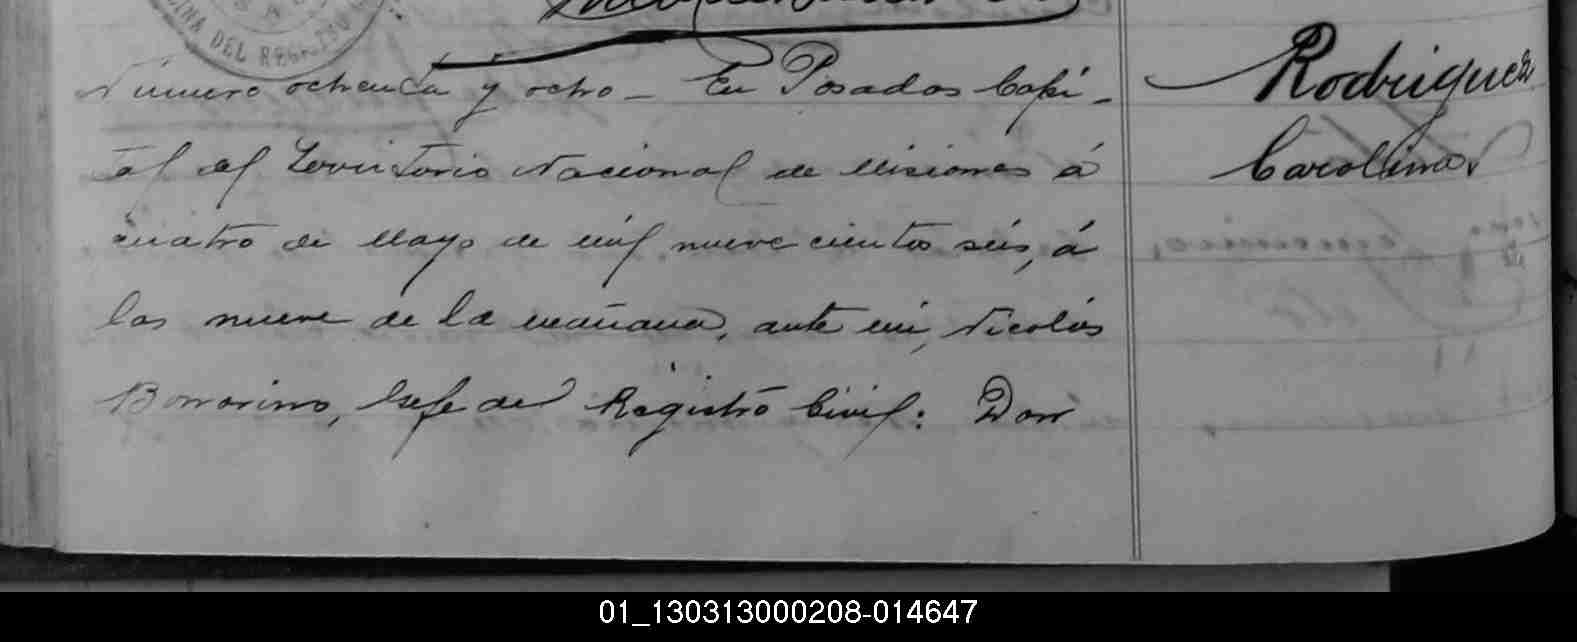 DEL REG
Número ochenta y ocho _ En Posadas Capi-
tal del Territorio Nacional de Misiones á
cuatro de Mayo de mil nueve cientos seis, á
las nueve de la mañana, ante mi, Nicolás
Bonorino, Gefe del Registro Civil: Don
Rodriguez
Carolina
01_130313000208-014647